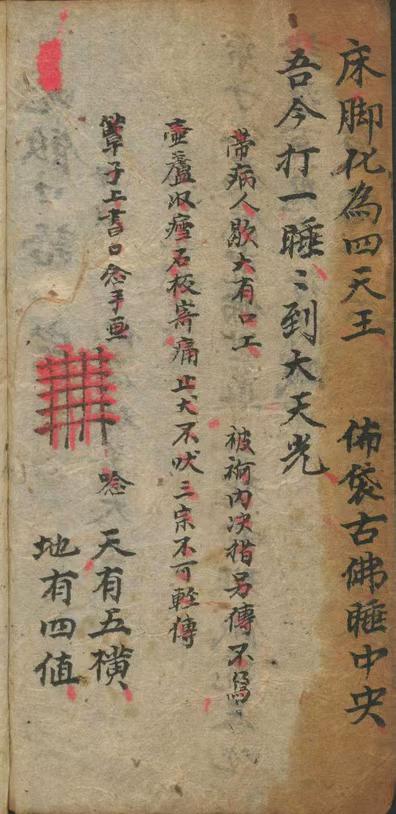 床脚化為四天王　佈袋古佛睡中央
吾今打一睡〻到大天光
帶病人歇大有口工　被祠内决指另傳不寫
壷蘆収痙石板寄痛止犬不吠三宗不可輕傳
簞子上書口念手画　唸　天有五橫
地有四值